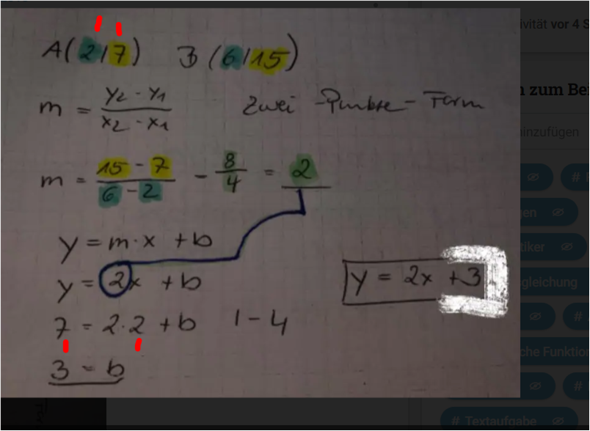 A(2|7) B(6|15)
m = y₂ - y₁ / x₂ - x₁ Zwei-Punkte-Form
m = 15 - 7 / 6 - 2 - 8/4 = 2
y = m·x + b
y = 2x + b
y = 2x + 3
7 = 2·2 + b |-4
3 = b
vor 4 S
zum Be
inzufügen
gleichung
che Funktio
# Textaufgabe